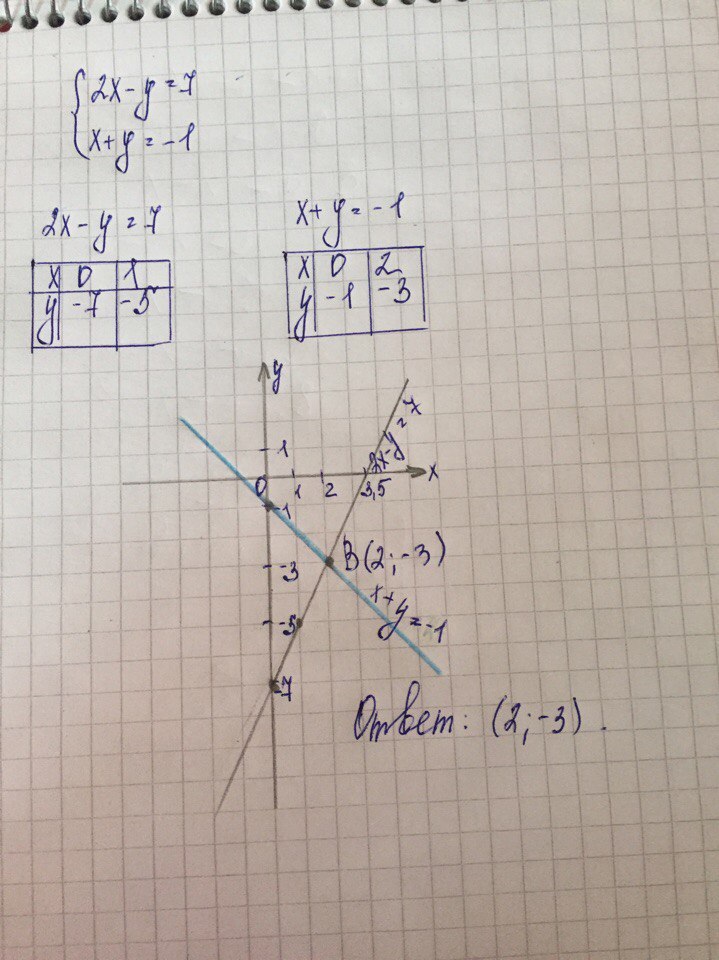 2x-y=7
x+y=-1
2x-y=7
x 0 1
y -7 -5
x+y=-1
x 0 2
y -1 -3
y
1
0 1 2 3,5 x
2x-y=7
-1
-3
B(2;-3)
x+y=-1
-5
-7
Ответ: (2;-3).